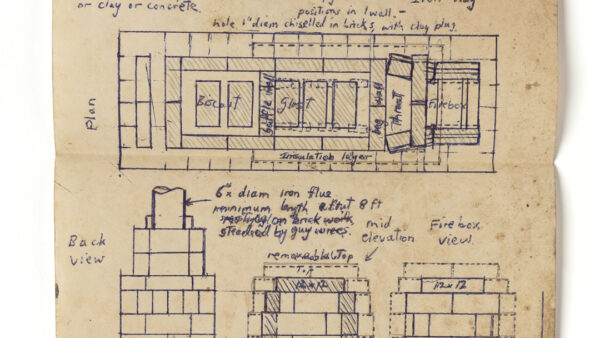 or clay or concrete.
positions in 1 wall. -
hole 1" diam chiselled in bricks, with clay plug.
Plan
Biscuit
baffle wall
Glost
bag wall
Throat
Firebox
Insulation layer
6" diam iron flue
minimum length about 8 ft
resting on brick work
steadied by guy wires.
mid
elevation
Firebox
view.
Back
view
removeable top
Top
12 x 12
12 x 12